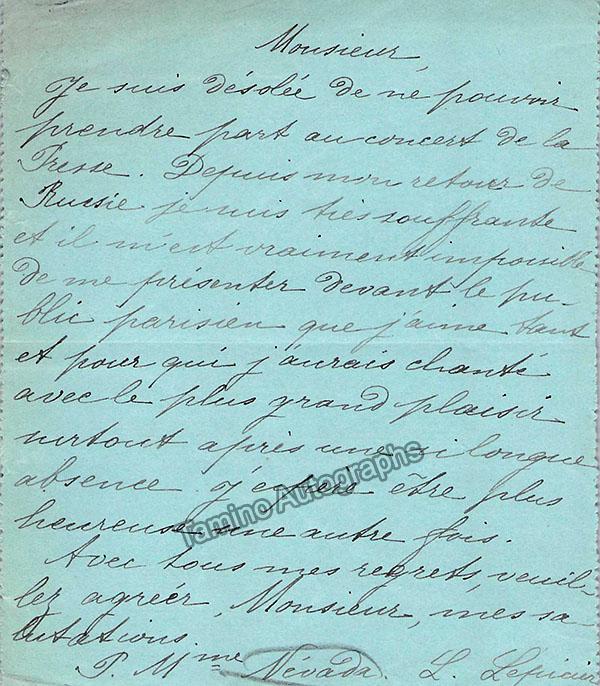 Monsieur,
Je suis désolée de ne pouvoir
prendre part au concert de la
Presse. Depuis mon retour de
Russie je suis très souffrante
et il m'est vraiment impossible
de me présenter devant le pu-
blic parisien que j'aime tant
et pour qui j'aurais chanté
avec le plus grand plaisir
surtout après une si longue
absence. J'espère être plus
Tamino Autographs
heureuse une autre fois.
Avec tous mes regrets, veuil-
lez agréer, Monsieur, mes sa-
lutations.
P. Mme Névada. L.